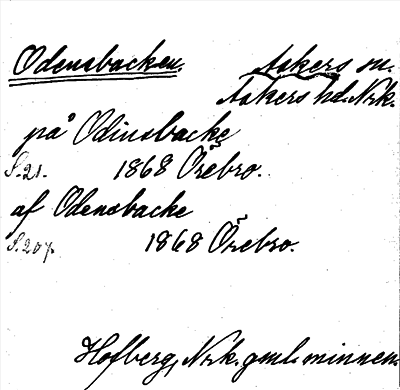 Odensbacken. Askers sn.
Askers hd. Nrk.
på Odinsbacke
S. 21. 1868 Örebro.
af Odensbacke
S. 207. 1868 Örebro.
Hofberg, Nrk. gml. minnen.